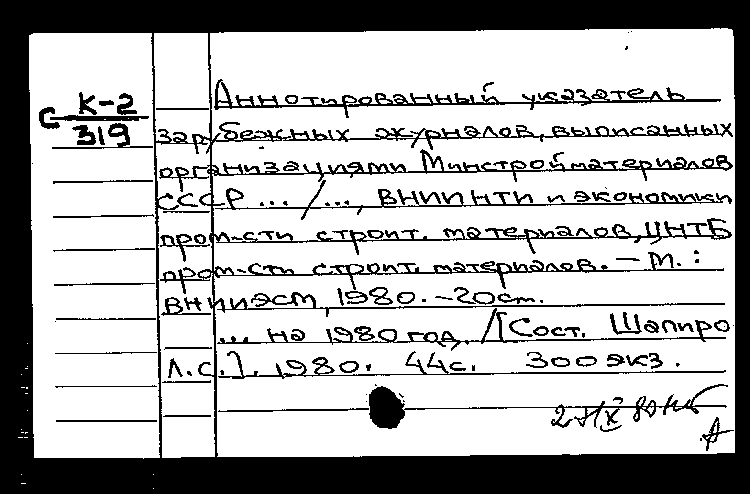 С К-2
319
Аннотированный указатель
зарубежных журналов, выписанных
организациями Минстройматериалов
СССР ... /..., ВНИИНТИ и экономики
пром-сти строит. материалов, ЦНТБ
пром-сти строит. материалов. – М. :
ВНИИЭСМ, 1980. – 20см.
... на 1980 год. /[Сост. Шапиро
Л.С.]. 1980. 44с. 300 экз.
А